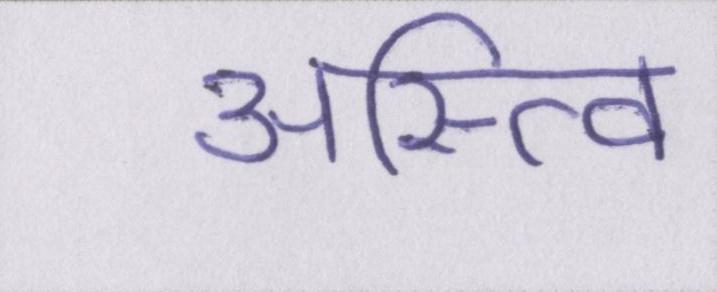 अस्त्वि